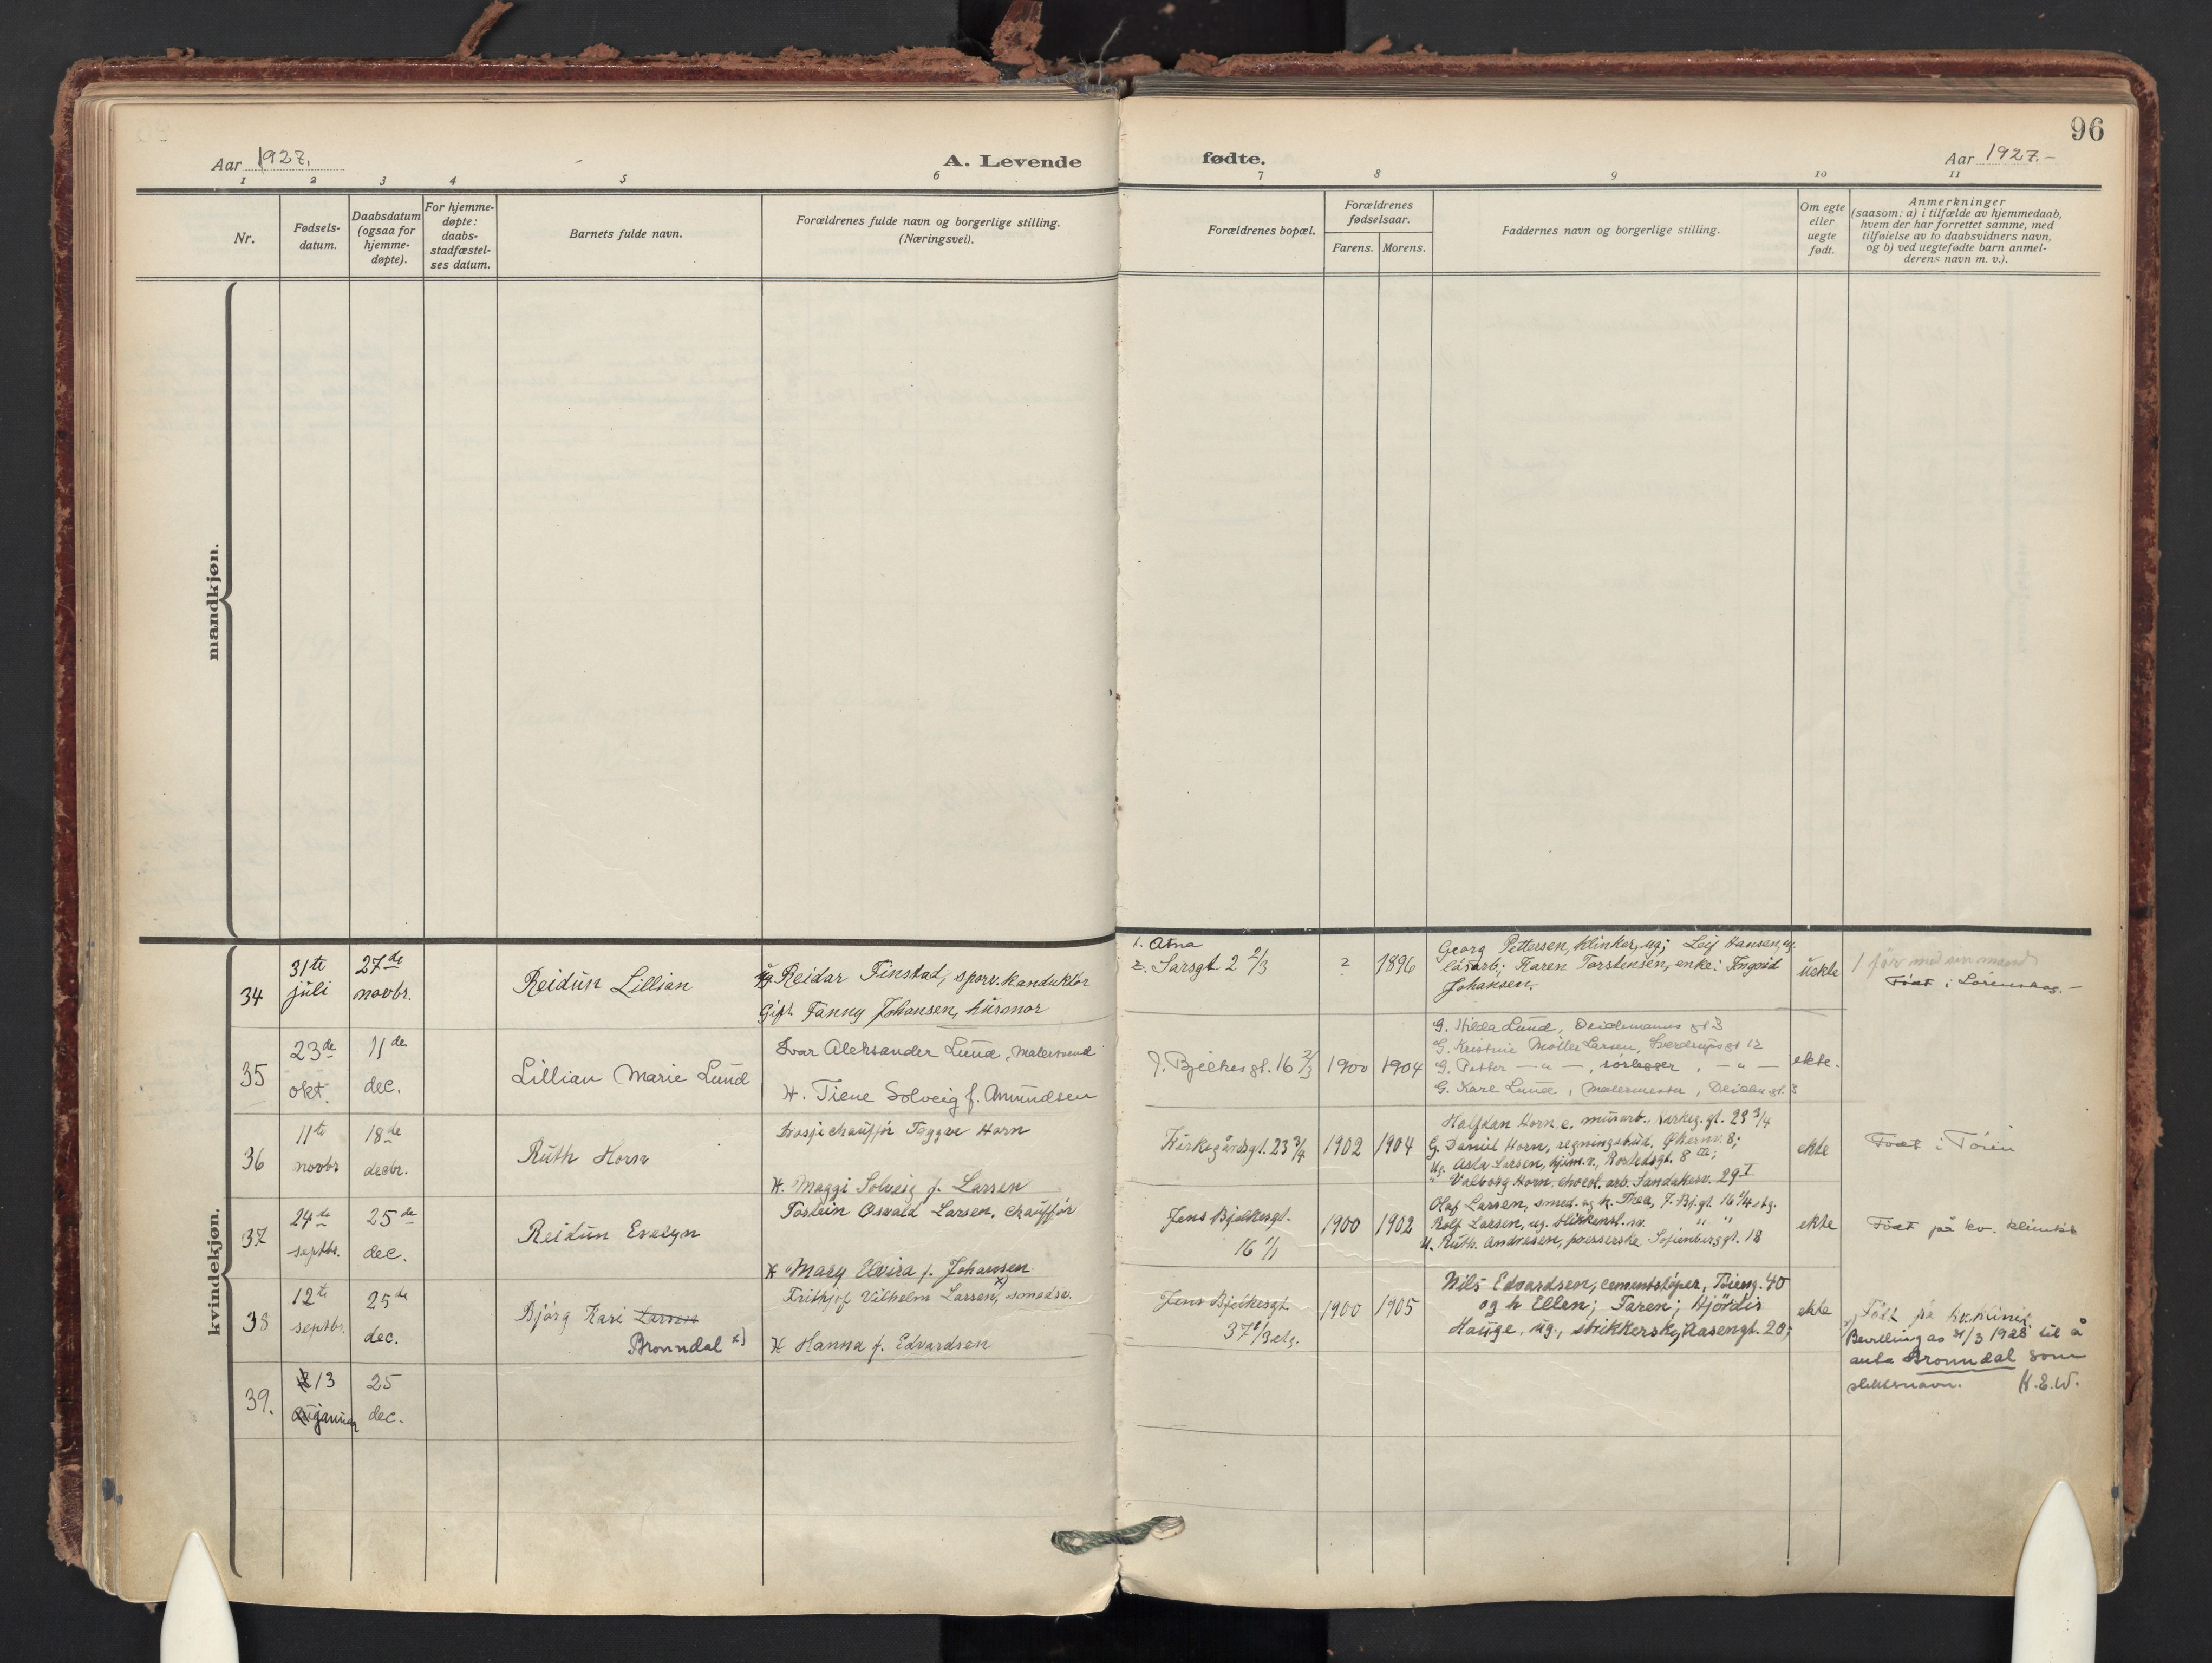 96
Aar 1927.
A. Levende
fødte.
Aar 1927.-
1 2 3 4 5 6 7 8 9 10 11
Nr.
Fødsels-
datum.
Daabsdatum
(ogsaa for
hjemme-
døpte).
For hjemme-
døpte:
daabs-
stadfæstel-
ses datum.
Barnets fulde navn.
Forældrenes fulde navn og borgerlige stilling.
(Næringsvei).
Forældrenes bopæl.
Forældrenes
fødselsaar.
Farens. Morens.
Faddernes navn og borgerlige stilling.
Om egte
eller
uegte
født.
Anmerkninger
(saasom: a) i tilfælde av hjemmedaab,
hvem der har forrettet samme, med
tilføielse av to daabsvidners navn,
og b) ved uegtefødte barn anmel-
derens navn m. v.).
mandkjøn.
kvindekjøn.
34
31te
juli
27de
novbr.
Reidun Lillian
ug. Reidar Finstad, sporv. konduktör
Gift Fanny Johansen, husmor
1. Atna
2. Sarsgt 2 2/3
? 1896
Georg Pettersen, klinker, ug; Leif Hansen, ug.
løsarb.; Karen Torstensen, enke; Ingrid
Johansen.
uekte
Født i Lörenskog.-
35
23de
okt.
11de
dec.
Lillian Marie Lund
Ivar Aleksander Lund, malersvend
H. Tiene Solveig f. Amundsen
J. Bjelkes gt. 16 2/3
1900 1904
G. Hilda Lund, Deichmanns gt 3
G. Kristine Møller Larsen, Sverdrups gt 12
G. Petter — " —, rörlegger, — " —
G. Karl Lund, malermester, Deichm gt. 3
ekte.
36
11te
novbr
18de
decbr.
Ruth Horn
Drosjechauffør Tryggve Horn
H. Maggi Solveig f. Larsen
Kirkegårdsgt. 23 3/4
1902 1904
Halfdan Horn, e. murarb., Kirkeg. gt. 23 3/4
G. Daniel Horn, regningsbud, Økernv. 8;
Ug. Asta Larsen, hjem.v., Rostedsgt. 8 III;
" Valborg Horn, chocol. arb. Sandakerv. 29 I
ekte
Født i Töien
37
24de
septbr.
25de
dec.
Reidun Evelyn
Torstein Oswald Larsen, chauffør
H Mary Elvira f. Johansen
Jens Bjelkesgt.
16 1/1
1900 1902
Olaf Larsen, smed. og h. Thea, J. Bj. gt. 16 1/4 etg.
Rolf Larsen, ug. blikkensl. sv. " "
U. Ruth Andresen, presserske Sofienberggt. 18
ekte
Født på kv. klinikk
38
12te
septbr.
25de
dec.
Bjørg Kari Larsen
Bronndal x)
Frithjof Vilhelm Larsen, x) smedsv.
H Hanna f. Edvardsen
Jens Bjelkesgt.
37 1/3 etg.
1900 1905
Nils Edvardsen, cementstøper, Töieng. 40
og h Ellen; Faren; Hjördis
Hauge, ug., strikkerske, Aasengt. 20;
ekte
Født på kv. klinik
x) Bevilling as 21/3 1928 til å
anta Bronndal som
slektsnavn. H.E.W.
39.
13
januar
25
dec.